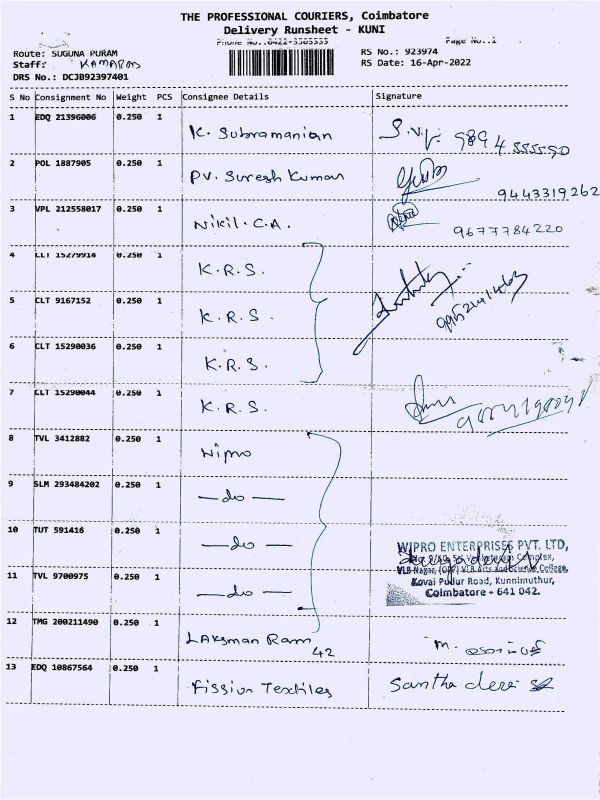 THE PROFESSIONAL COURIERS, Coimbatore
Delivery Runsheet - KUNI
Phone No.:0422-3505555 Page No.:1
Route: SUGUNA PURAM RS No.: 923974
Staff: KAMARAJ RS Date: 16-Apr-2022
DRS No.: DCJB92397401
S No Consignment No Weight PCS Consignee Details Signature
1 EDQ 21396006 0.250 1 K. Subramanian S.V. 9894555590
2 POL 1887905 0.250 1 PV. Suresh Kumar 9443319262
3 VPL 212558017 0.250 1 Nikil. C.A. 9677784220
4 CLT 15279914 0.250 1 K.R.S.
5 CLT 9167152 0.250 1 K.R.S.
6 CLT 15290036 0.250 1 K.R.S.
7 CLT 15290044 0.250 1 K.R.S.
8 TVL 3412882 0.250 1 Wipro
9 SLM 293484202 0.250 1 —do—
10 TUT 591416 0.250 1 —do—
WIPRO ENTERPRISES PVT. LTD,
11 TVL 9700975 0.250 1 —do—
VLB Nagar, (OPP) VLB Arts and Science College,
Kovai Pudur Road, Kunnimuthur,
Coimbatore - 641 042.
12 TMG 200211490 0.250 1 Laksman Ram 42 M.
13 EDQ 10867564 0.250 1 Fission Textiles Santha devi